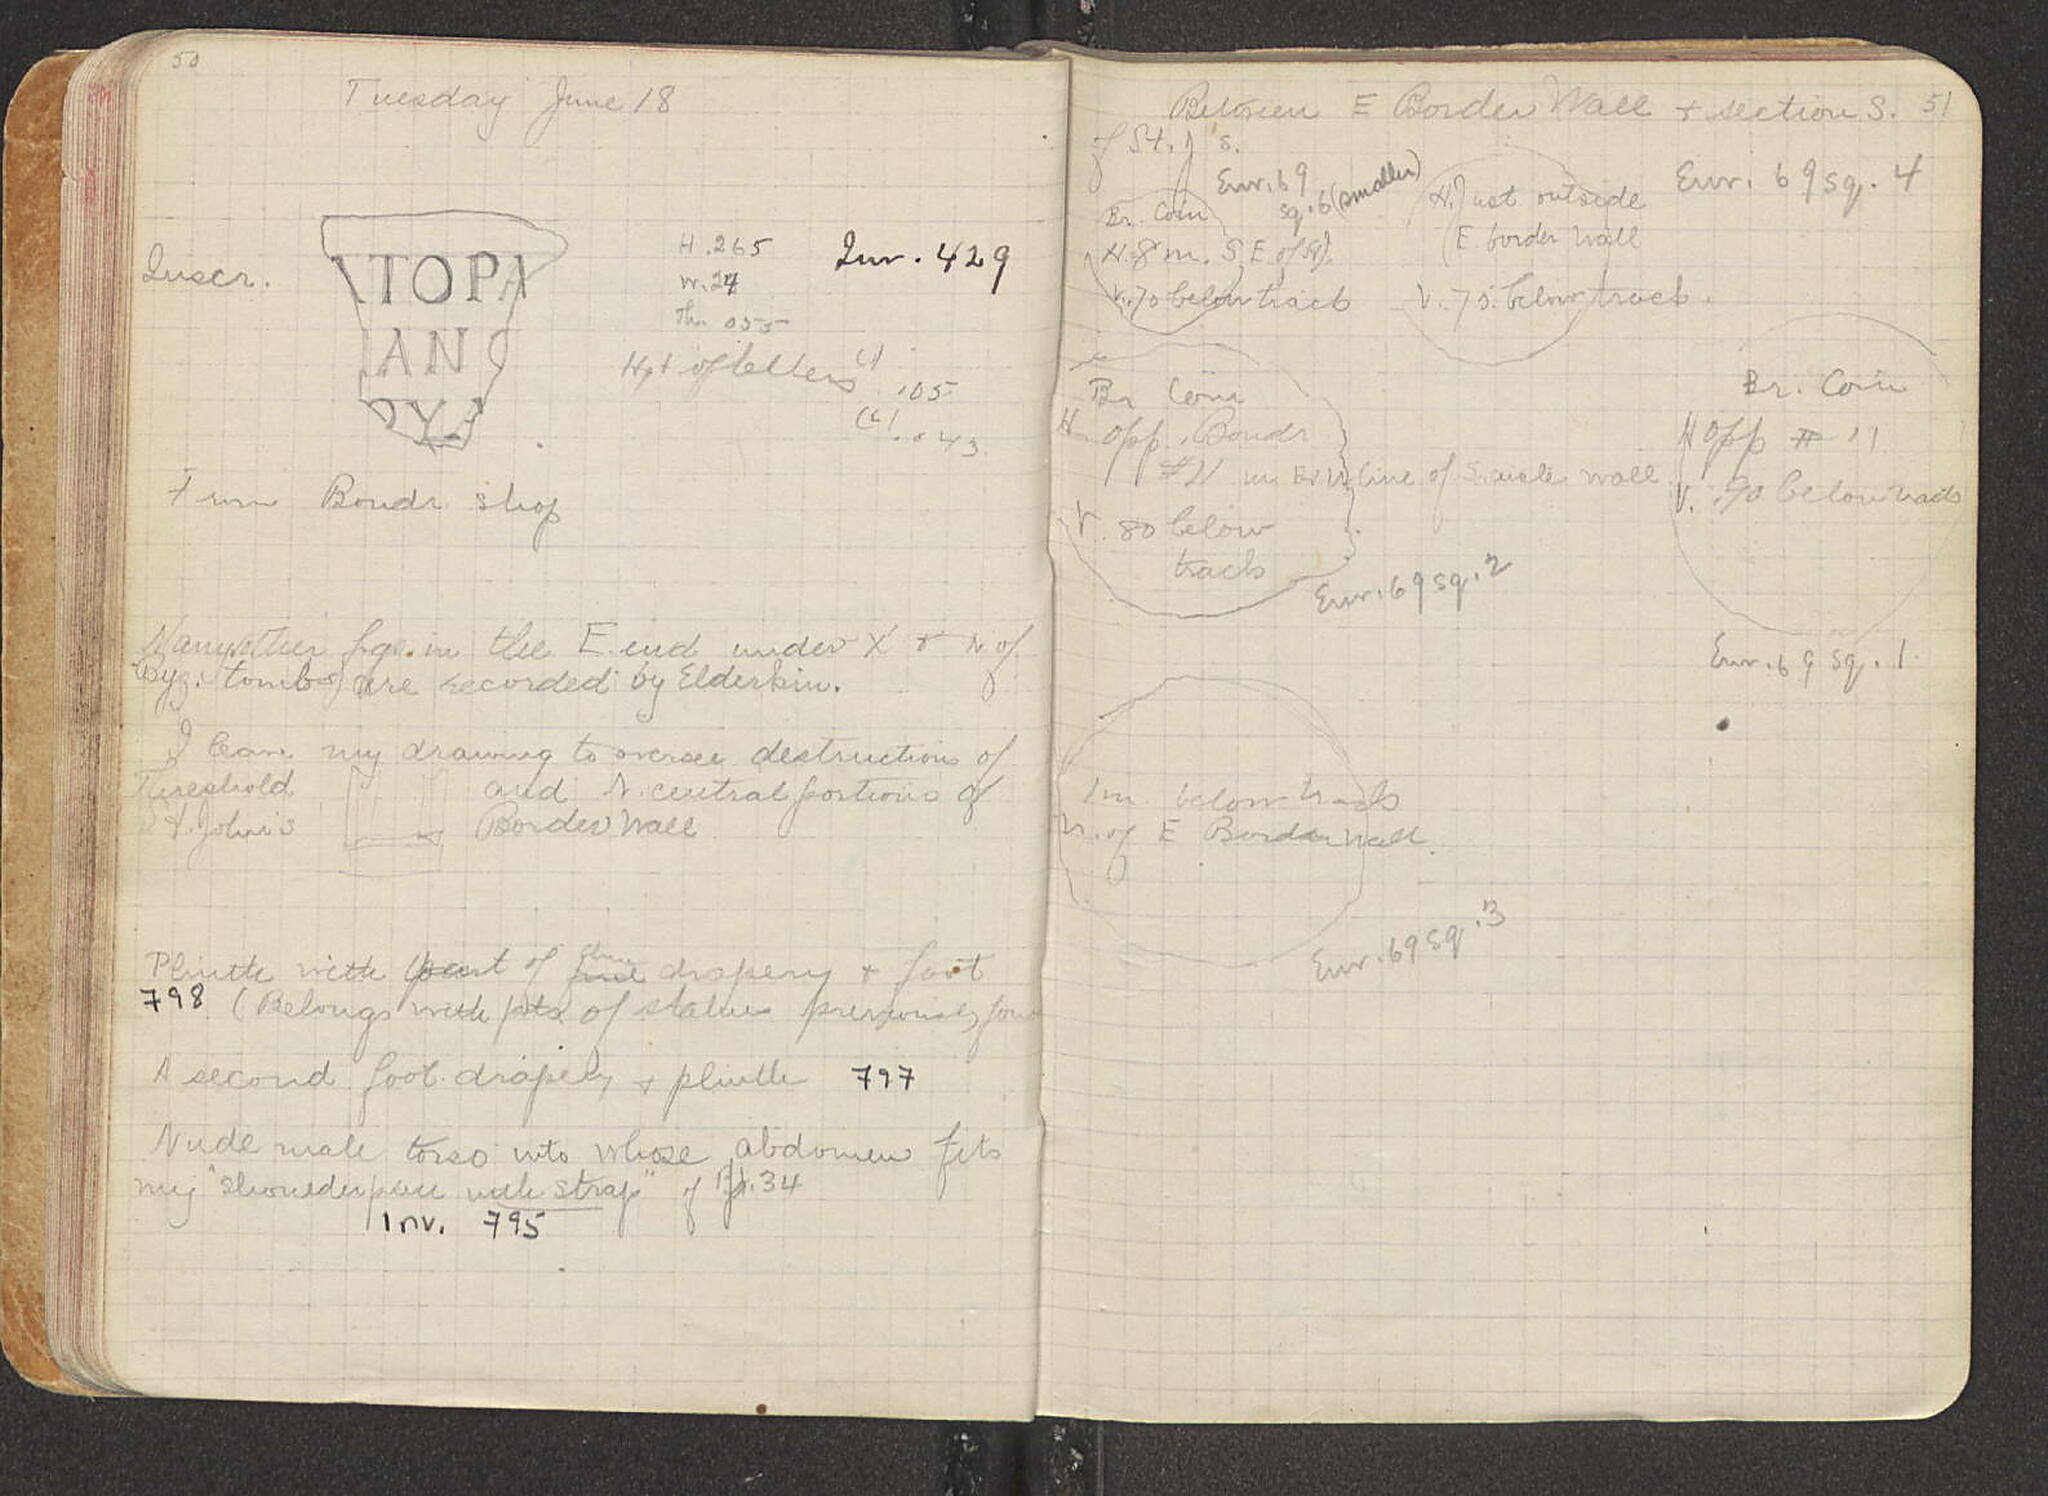 50
Tuesday June 18
Inscr.
TOPA
AN
H .265
W. 24
Th. 055
Inv. 429
Hgt of letters (1) .105
(2) .043
From Boudr. shop
Many other frgs. in the E. end under X & N of
Byz. tombs are recorded by Elderkin.
I leave my drawing to oversee destruction of
Threshold and N. central portions of
St. John's Border Wall
Plinth with part of drapery & foot
798 (Belongs with pts. of statue previously foun
A second foot drapery & plinth 797
Nude male torso into whose abdomen fits
my "shoulder piece with strap" of 34
Inv. 795
Between E Border Wall & section S. 51
of St. J's.
Env. 69
sq. 6 (smaller)
Br. Coin
H. 8 m. S.E. of St J.
V. .70 below track
H. Just outside
E. border wall
V. .75 below track.
Env. 69 sq. 4
Br Coin
H. opp. Boudr
#11 in line of wall
V. 80 below
track
Env. 69 sq. 2
Br. Coin
H opp # 11
V. .90 below track
Env. 69 sq. 1
1 m. below track
N. of E Border Wall.
Env. 69 sq. 3